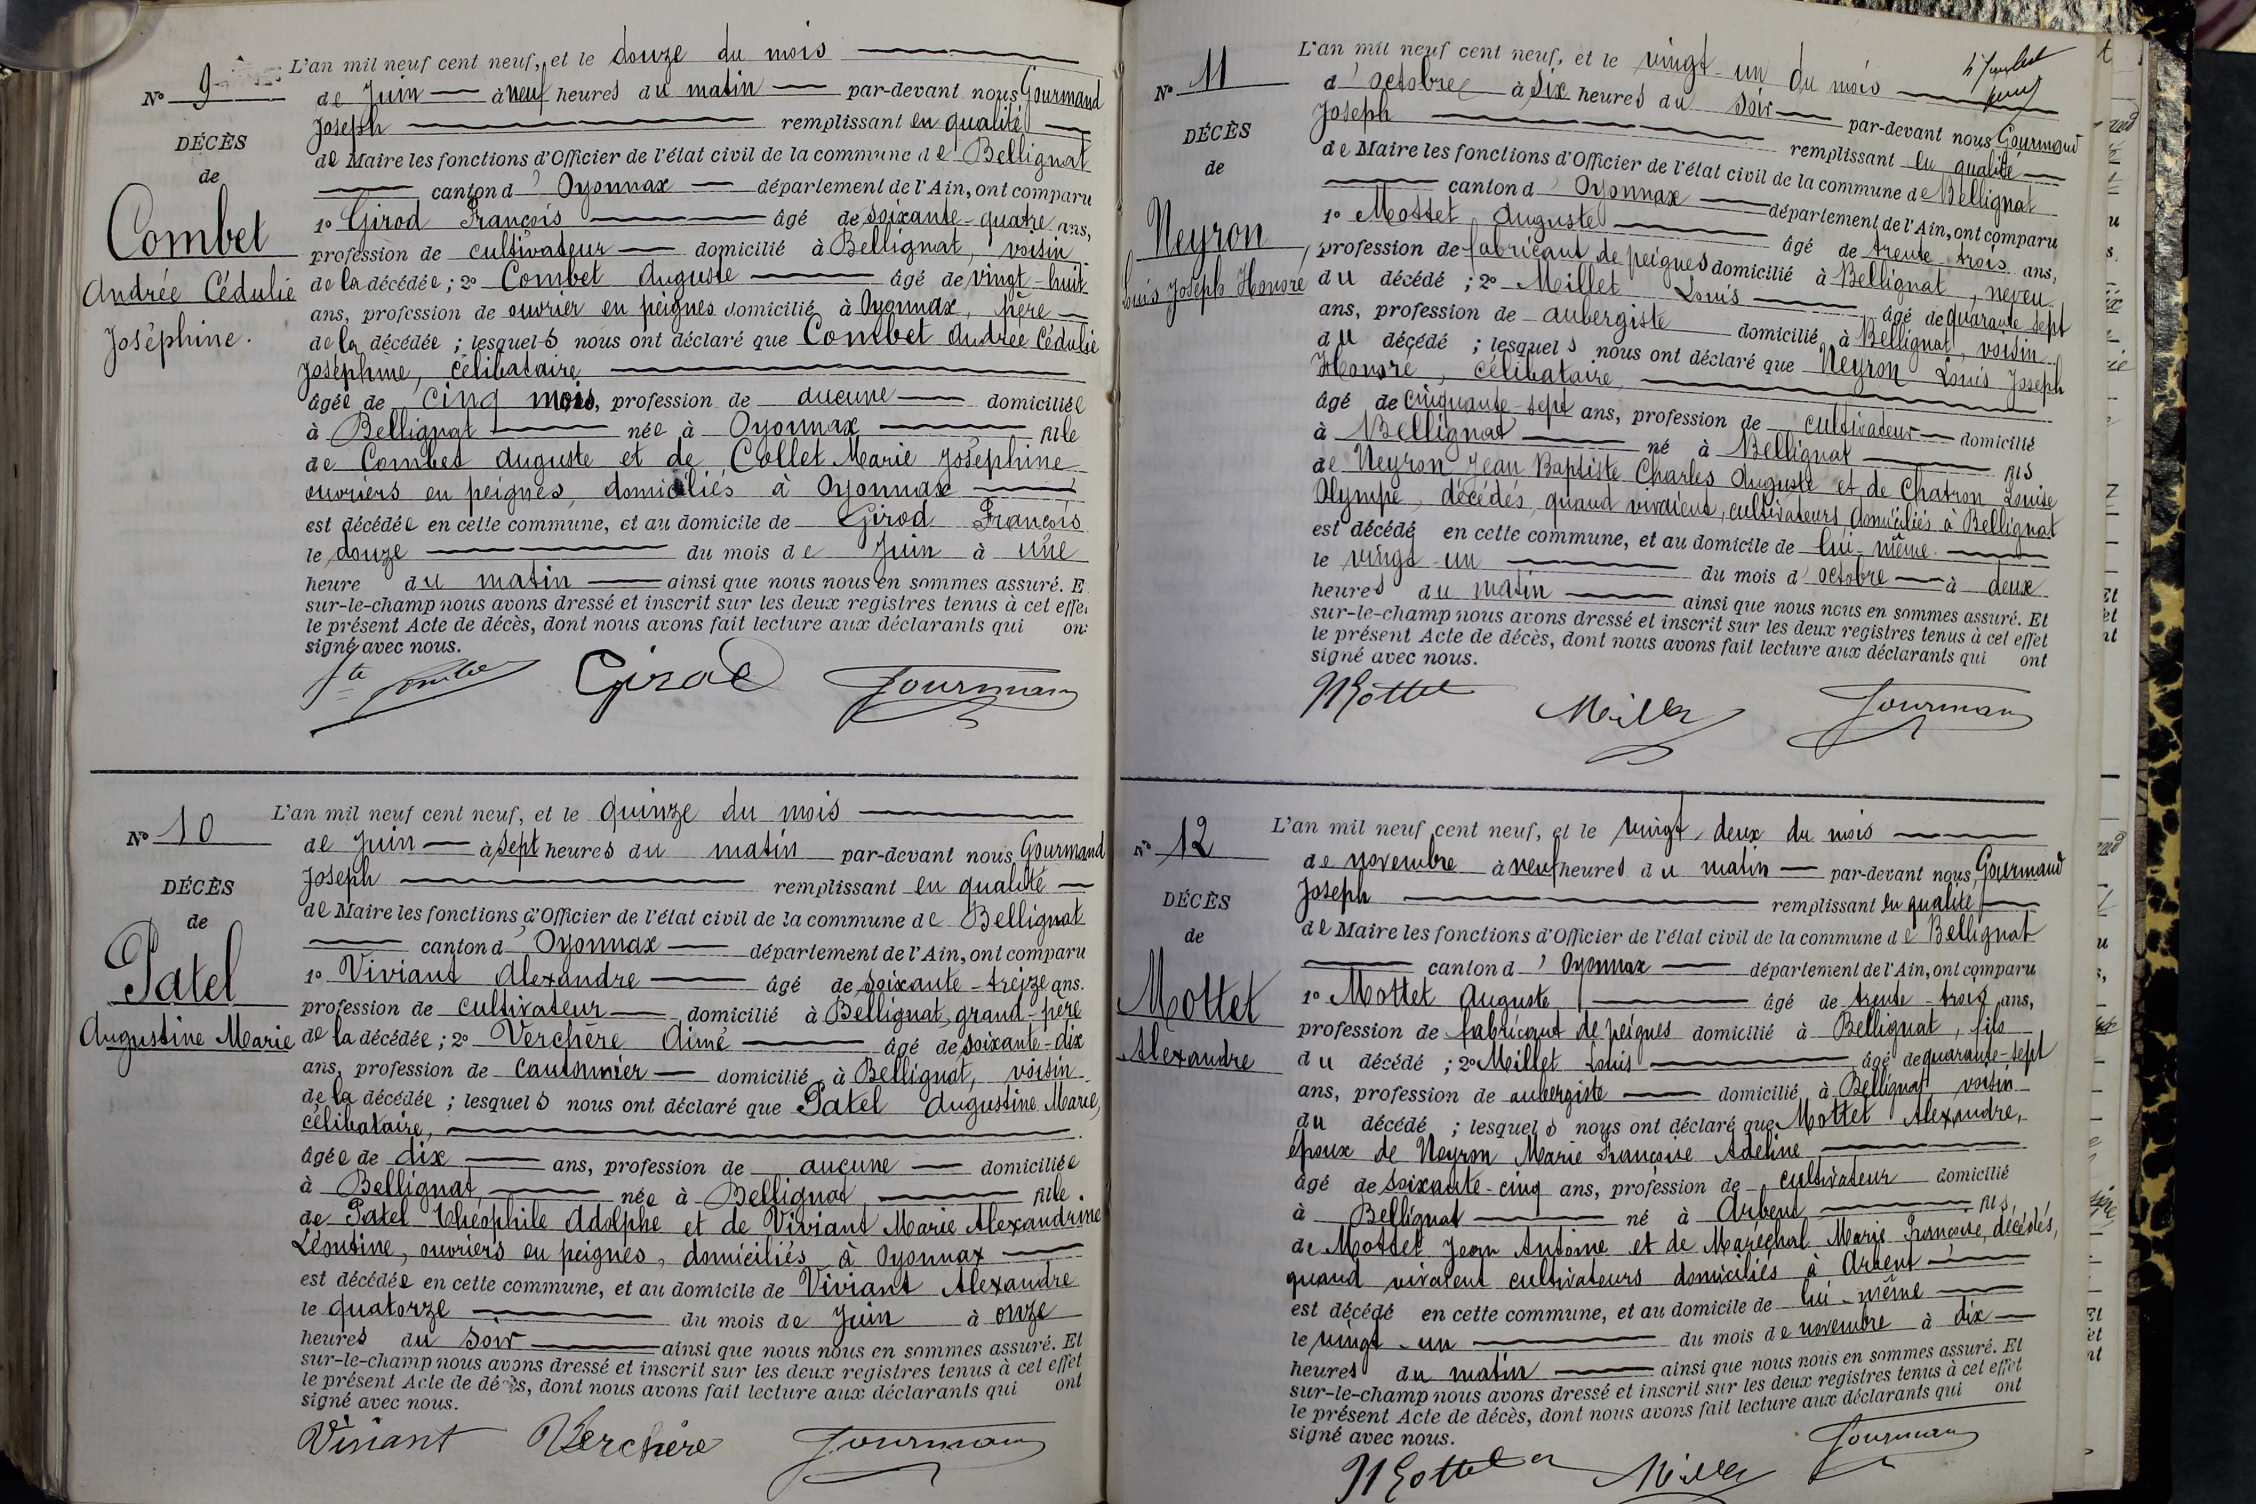 N° 9
DÉCÈS
de
Combet
Andrée Cédulie
Joséphine.
L'an mil neuf cent neuf, et le douze du mois
de Juin à neuf heures du matin par-devant nous Gourmand
Joseph remplissant en qualité
de Maire les fonctions d'Officier de l'état civil de la commune de Bellignat
canton d'Oyonnax département de l'Ain, ont comparu
1° Girod François âgé de soixante-quatre ans,
profession de cultivateur domicilié à Bellignat, voisin
de la décédée ; 2° Combet Auguste âgé de vingt-huit
ans, profession de ouvrier en peignes domicilié à Oyonnax, père
de la décédée ; lesquels nous ont déclaré que Combet Andrée Cédulie
Joséphine, célibataire
âgée de cinq mois, profession de aucune domiciliée
à Bellignat née à Oyonnax fille
de Combet Auguste et de Collet Marie Joséphine
ouvriers en peignes, domiciliés à Oyonnax
est décédée en cette commune, et au domicile de Girod François
le douze du mois de Juin à une
heure du matin ainsi que nous nous en sommes assuré. E
sur-le-champ nous avons dressé et inscrit sur les deux registres tenus à cet effe
le présent Acte de décès, dont nous avons fait lecture aux déclarants qui on
signé avec nous.
Girod Gourmand
N° 10
DÉCÈS
de
Patel
Augustine Marie
L'an mil neuf cent neuf, et le quinze du mois
de Juin à sept heures du matin par-devant nous Gourmand
Joseph remplissant en qualité
de Maire les fonctions d'Officier de l'état civil de la commune de Bellignat
canton d'Oyonnax département de l'Ain, ont comparu
1° Viviant Alexandre âgé de soixante-treize ans.
profession de cultivateur domicilié à Bellignat, grand-père
de la décédée ; 2° Verchère Aimé âgé de soixante-dix
ans, profession de cantonnier domicilié à Bellignat, voisin
de la décédée ; lesquels nous ont déclaré que Patel Augustine Marie,
célibataire,
âgée de dix ans, profession de aucune domiciliée
à Bellignat, née à Bellignat, fille
de Patel Théophile Adolphe et de Viviant Marie Alexandrine
Léontine, ouvriers en peignes, domiciliés à Oyonnax
est décédée en cette commune, et au domicile de Viviant Alexandre
le quatorze du mois de Juin à onze
heures du soir ainsi que nous nous en sommes assuré. Et
sur-le-champ nous avons dressé et inscrit sur les deux registres tenus à cet effet
le présent Acte de décès, dont nous avons fait lecture aux déclarants qui ont
signé avec nous.
Viviant Verchère Gourmand
N° 11
DÉCÈS
de
Neyron,
Louis Joseph Honoré
L'an mil neuf cent neuf, et le vingt-un du mois
d'octobre à six heures du soir par-devant nous Gourmand
Joseph remplissant en qualité
de Maire les fonctions d'Officier de l'état civil de la commune de Bellignat
canton d'Oyonnax département de l'Ain, ont comparu
1° Mottet Auguste âgé de trente-trois ans,
profession de fabricant de peignes domicilié à Bellignat, neveu
du décédé ; 2° Millet Louis âgé de quarante sept
ans, profession de aubergiste domicilié à Bellignat, voisin
du décédé ; lesquels nous ont déclaré que Neyron Louis Joseph
Honoré, célibataire,
âgé de cinquante-sept ans, profession de cultivateur domicilié
à Bellignat né à Bellignat fils
de Neyron Jean Baptiste Charles Auguste et de Chatron Louise
Olympe, décédés, quand vivaient, cultivateurs domiciliés à Bellignat
est décédé en cette commune, et au domicile de lui-même.
le vingt-un du mois d'octobre à deux
heures du matin ainsi que nous nous en sommes assuré. Et
sur-le-champ nous avons dressé et inscrit sur les deux registres tenus à cet effet
le présent Acte de décès, dont nous avons fait lecture aux déclarants qui ont
signé avec nous.
Mottet Millet Gourmand
N° 12
DÉCÈS
de
Mottet
Alexandre
L'an mil neuf cent neuf, et le vingt-deux du mois
de novembre à neuf heures du matin par-devant nous Gourmand
Joseph remplissant en qualité
de Maire les fonctions d'Officier de l'état civil de la commune de Bellignat
canton d'Oyonnax département de l'Ain, ont comparu
1° Mottet Auguste âgé de trente-trois ans,
profession de fabricant de peignes domicilié à Bellignat, fils
du décédé ; 2° Millet Louis âgé de quarante-sept
ans, profession de aubergiste domicilié à Bellignat, voisin
du décédé ; lesquels nous ont déclaré que Mottet Alexandre,
époux de Neyron Marie Françoise Adeline
âgé de soixante-cinq ans, profession de cultivateur domicilié
à Bellignat né à Arbent fils,
de Mottet Jean Antoine et de Maréchal Marie Françoise, décédés,
quand vivaient cultivateurs domiciliés à Arbent
est décédé en cette commune, et au domicile de lui-même
le vingt-un du mois de novembre à dix
heures du matin ainsi que nous nous en sommes assuré. Et
sur-le-champ nous avons dressé et inscrit sur les deux registres tenus à cet effet
le présent Acte de décès, dont nous avons fait lecture aux déclarants qui ont
signé avec nous.
Mottet Millet Gourmand